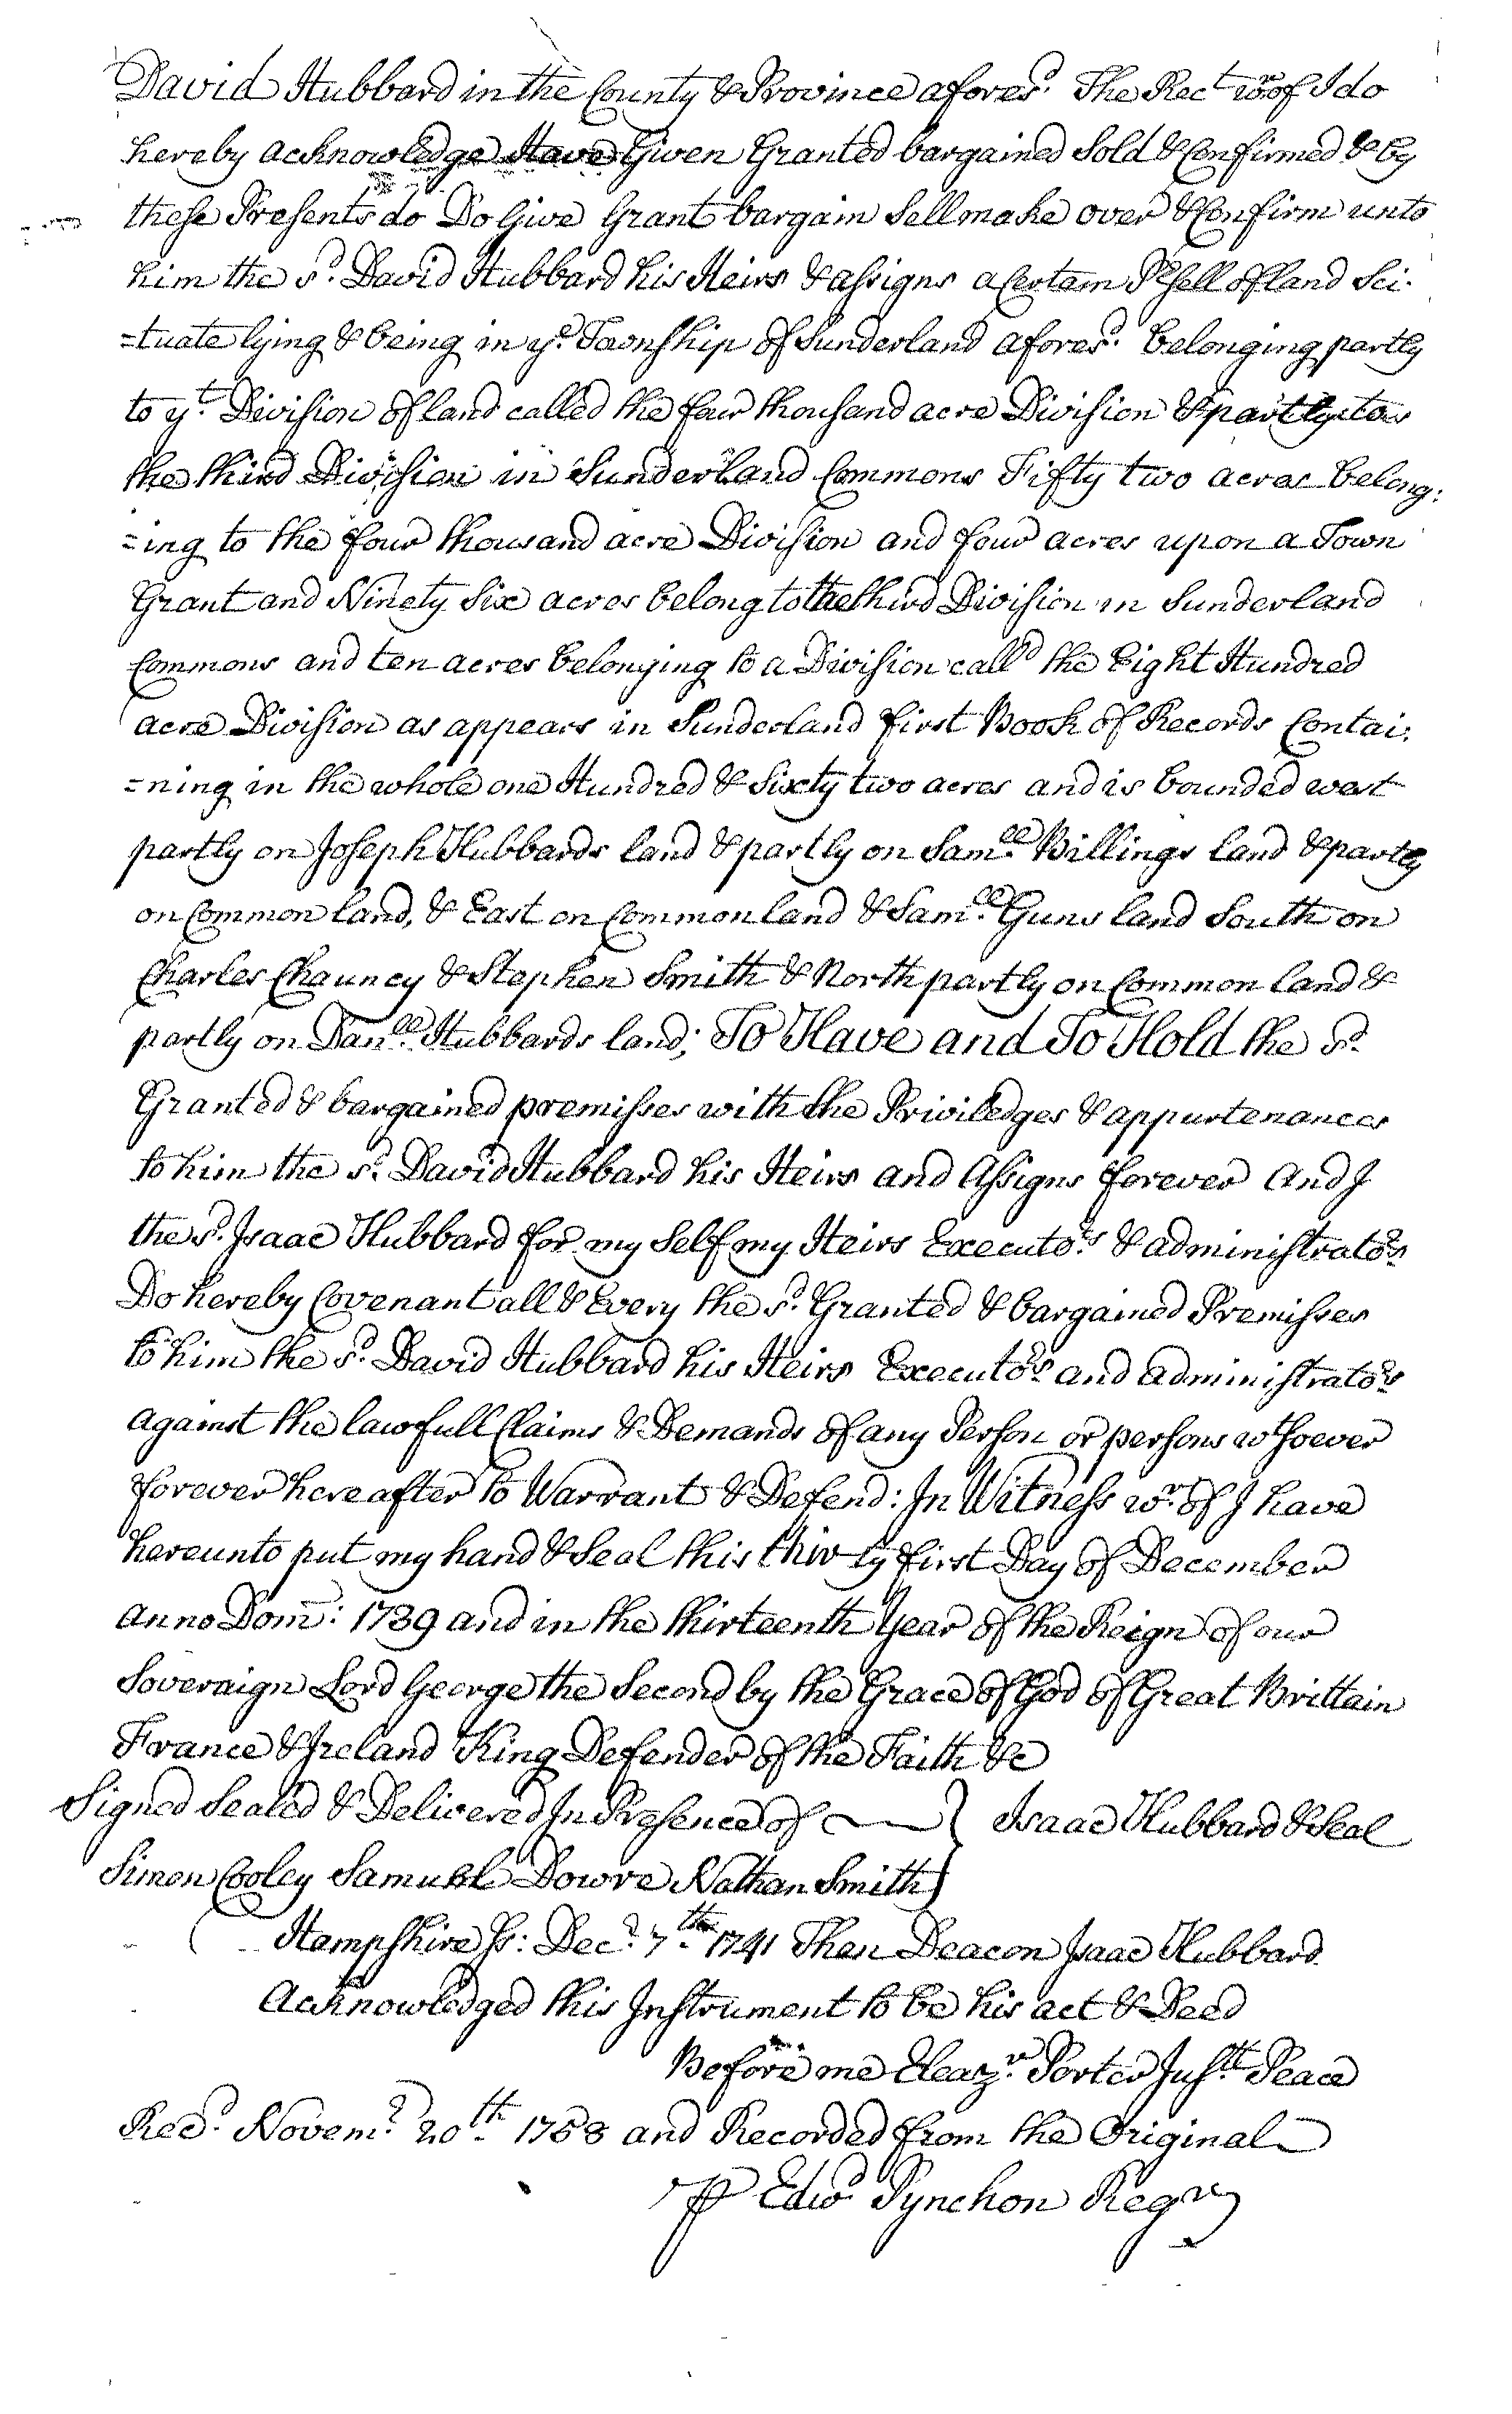 David Hubbard in the County & Province afores.d The Rec.t w.r of I do
hereby acknowledge Have Given Granted bargained Sold & Confirmed & by
these Presents do Do Give Grant bargain Sell make over & Confirm unto
him the s.d David Hubbard his Heirs & assigns a Certain P'sell of land Sci-
=tuate lying & being in y.e Township of Sunderland afores.d belonging partly
to y.t Division of land called the four thousand acre Division & partly to
the third Division in Sunderland Commons Fifty two acres belong:
=ing to the four thousand acre Division and four acres upon a Town
Grant and Ninety Six acres belong to the third Division in Sunderland
Commons and ten acres belonging to a Division call.d the Eight Hundred
acre Division as appears in Sunderland first Book of Records Contai:
=ning in the whole one Hundred & Sixty two acres and is bounded west
partly on Joseph Hubbards land & partly on Sam.ll Billings land & partly
on Common land, & East on Common land & Sam.ll Guns land South on
Charles Chauncy & Stephen Smith & North partly on Common land &
partly on Dan.ll Hubbards land; To Have and To Hold the s.d
Granted & bargained premisses with the Priviledges & appurtenances
to him the s.d David Hubbard his Heirs and Assigns forever And I
the s.d Isaac Hubbard for my Self my Heirs Executo.rs & administrato.rs
Do hereby Covenant all & Every the s.d Granted & bargained Premisses
to him the s.d David Hubbard his Heirs Executo.rs and administrato.rs
against the lawfull Claims & Demands of any Person or persons w.tsoever
forever hereafter to Warrant & Defend: In Witness w.r of I have
hereunto put my hand & Seal this thirty first Day of December
Anno Dom: 1739 and in the thirteenth Year of the Reign of our
Soveraign Lord George the Second by the Grace of God of Great Brittain
France & Ireland King Defender of the Faith &c
Signed Sealed & Delivered In Presence of } Isaac Hubbard & Seal
Simon Cooley Samuel Dowre Nathan Smith }
Hampshire Ss: Dec.r 7.th 1741 Then Deacon Isaac Hubbard
Acknowledged this Instrument to be his act & Deed
Before me Eleaz.r Porter Jus.tt Peace
Rec.d Novem.r 20.th 1758 and Recorded from the Original
P Edw.d Pynchon Reg.r